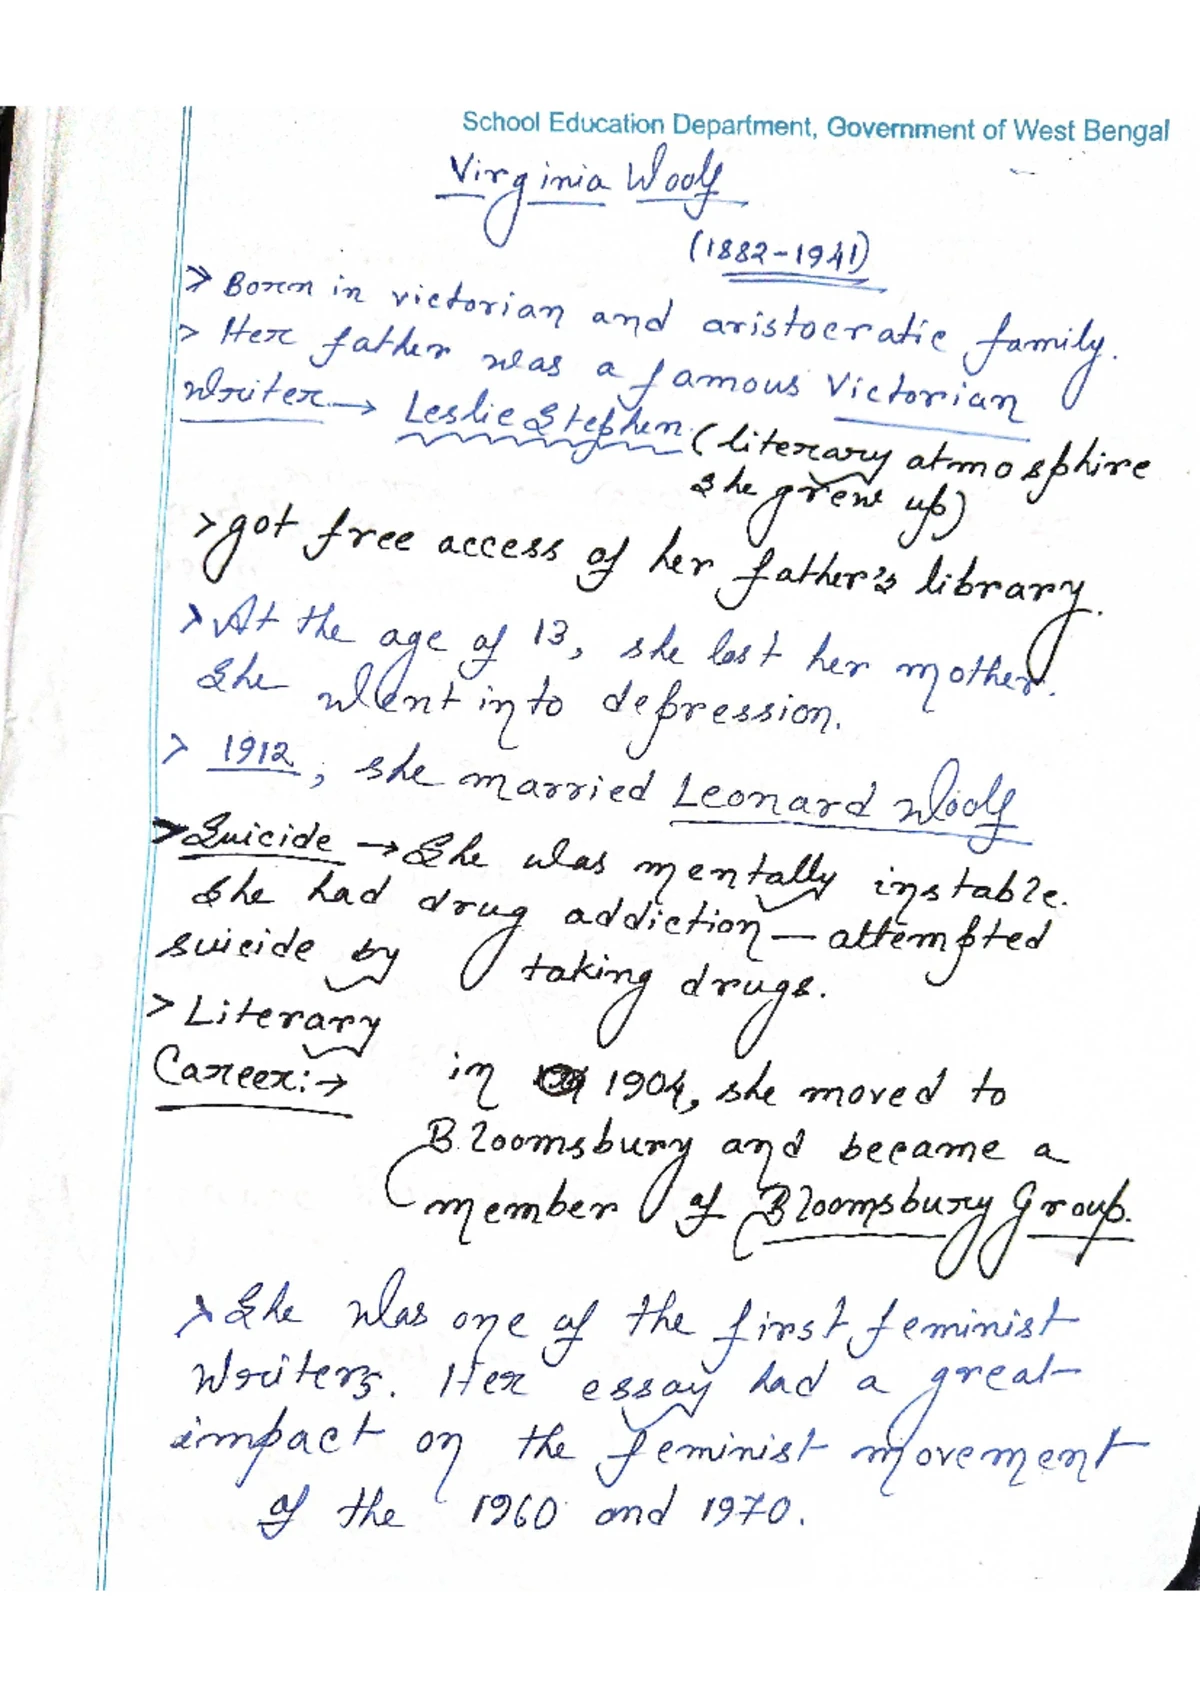 School Education Department, Government of West Bengal
Virginia Woolf
(1882-1941)
> Born in victorian and aristocratic family.
> Her father was a famous Victorian
Writer → Leslie Stephen (literary atmosphire
she grew up)
> got free access of her father's library.
> At the age of 13, she lost her mother.
She went into depression.
> 1912, she married Leonard Woolf
> Suicide → She was mentally instable.
She had drug addiction — attempted
suicide by taking drugs.
> Literary
Career:→ in 1904, she moved to
Bloomsbury and became a
member of Bloomsbury Group.
> She was one of the first feminist
Writers. Her essay had a great
impact on the feminist movement
of the 1960 and 1970.